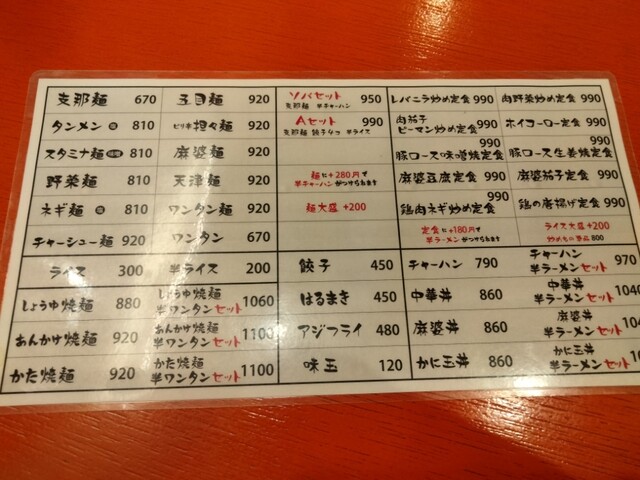 支那麺 670 五目麺 920 ソバセット 950 レバニラ炒め定食 990 肉野菜炒め定食 990
支那麺 半チャーハン
タンメン 塩 810 ピリ辛 担々麺 920 Aセット 990 肉茄子ピーマン炒め定食 990 ホイコーロー定食 990
支那麺 餃子4コ 半ライス
スタミナ麺 810 麻婆麺 920 豚ロース味噌焼定食 990 豚ロース生姜焼定食 990
野菜麺 810 天津麺 920 麺に+280円で 麻婆豆腐定食 990 麻婆茄子定食 990
半チャーハンがつけられます
ネギ麺 塩 810 ワンタン麺 920 麺大盛 +200 鶏肉ネギ炒め定食 990 鶏の唐揚げ定食 990
チャーシュー麺 920 ワンタン 670 定食に+180円で ライス大盛 +200
半ラーメンがつけられます 炒めもの単品 800
ライス 300 半ライス 200 餃子 450 チャーハン 790 チャーハン半ラーメンセット 970
しょうゆ焼麺 880 しょうゆ焼麺半ワンタンセット 1060 はるまき 450 中華丼 860 中華丼半ラーメンセット 1040
あんかけ焼麺 920 あんかけ焼麺半ワンタンセット 1100 アジフライ 480 麻婆丼 860 麻婆丼半ラーメンセット
かた焼麺 920 かた焼麺半ワンタンセット 1100 味玉 120 かに玉丼 860 かに玉丼半ラーメンセット